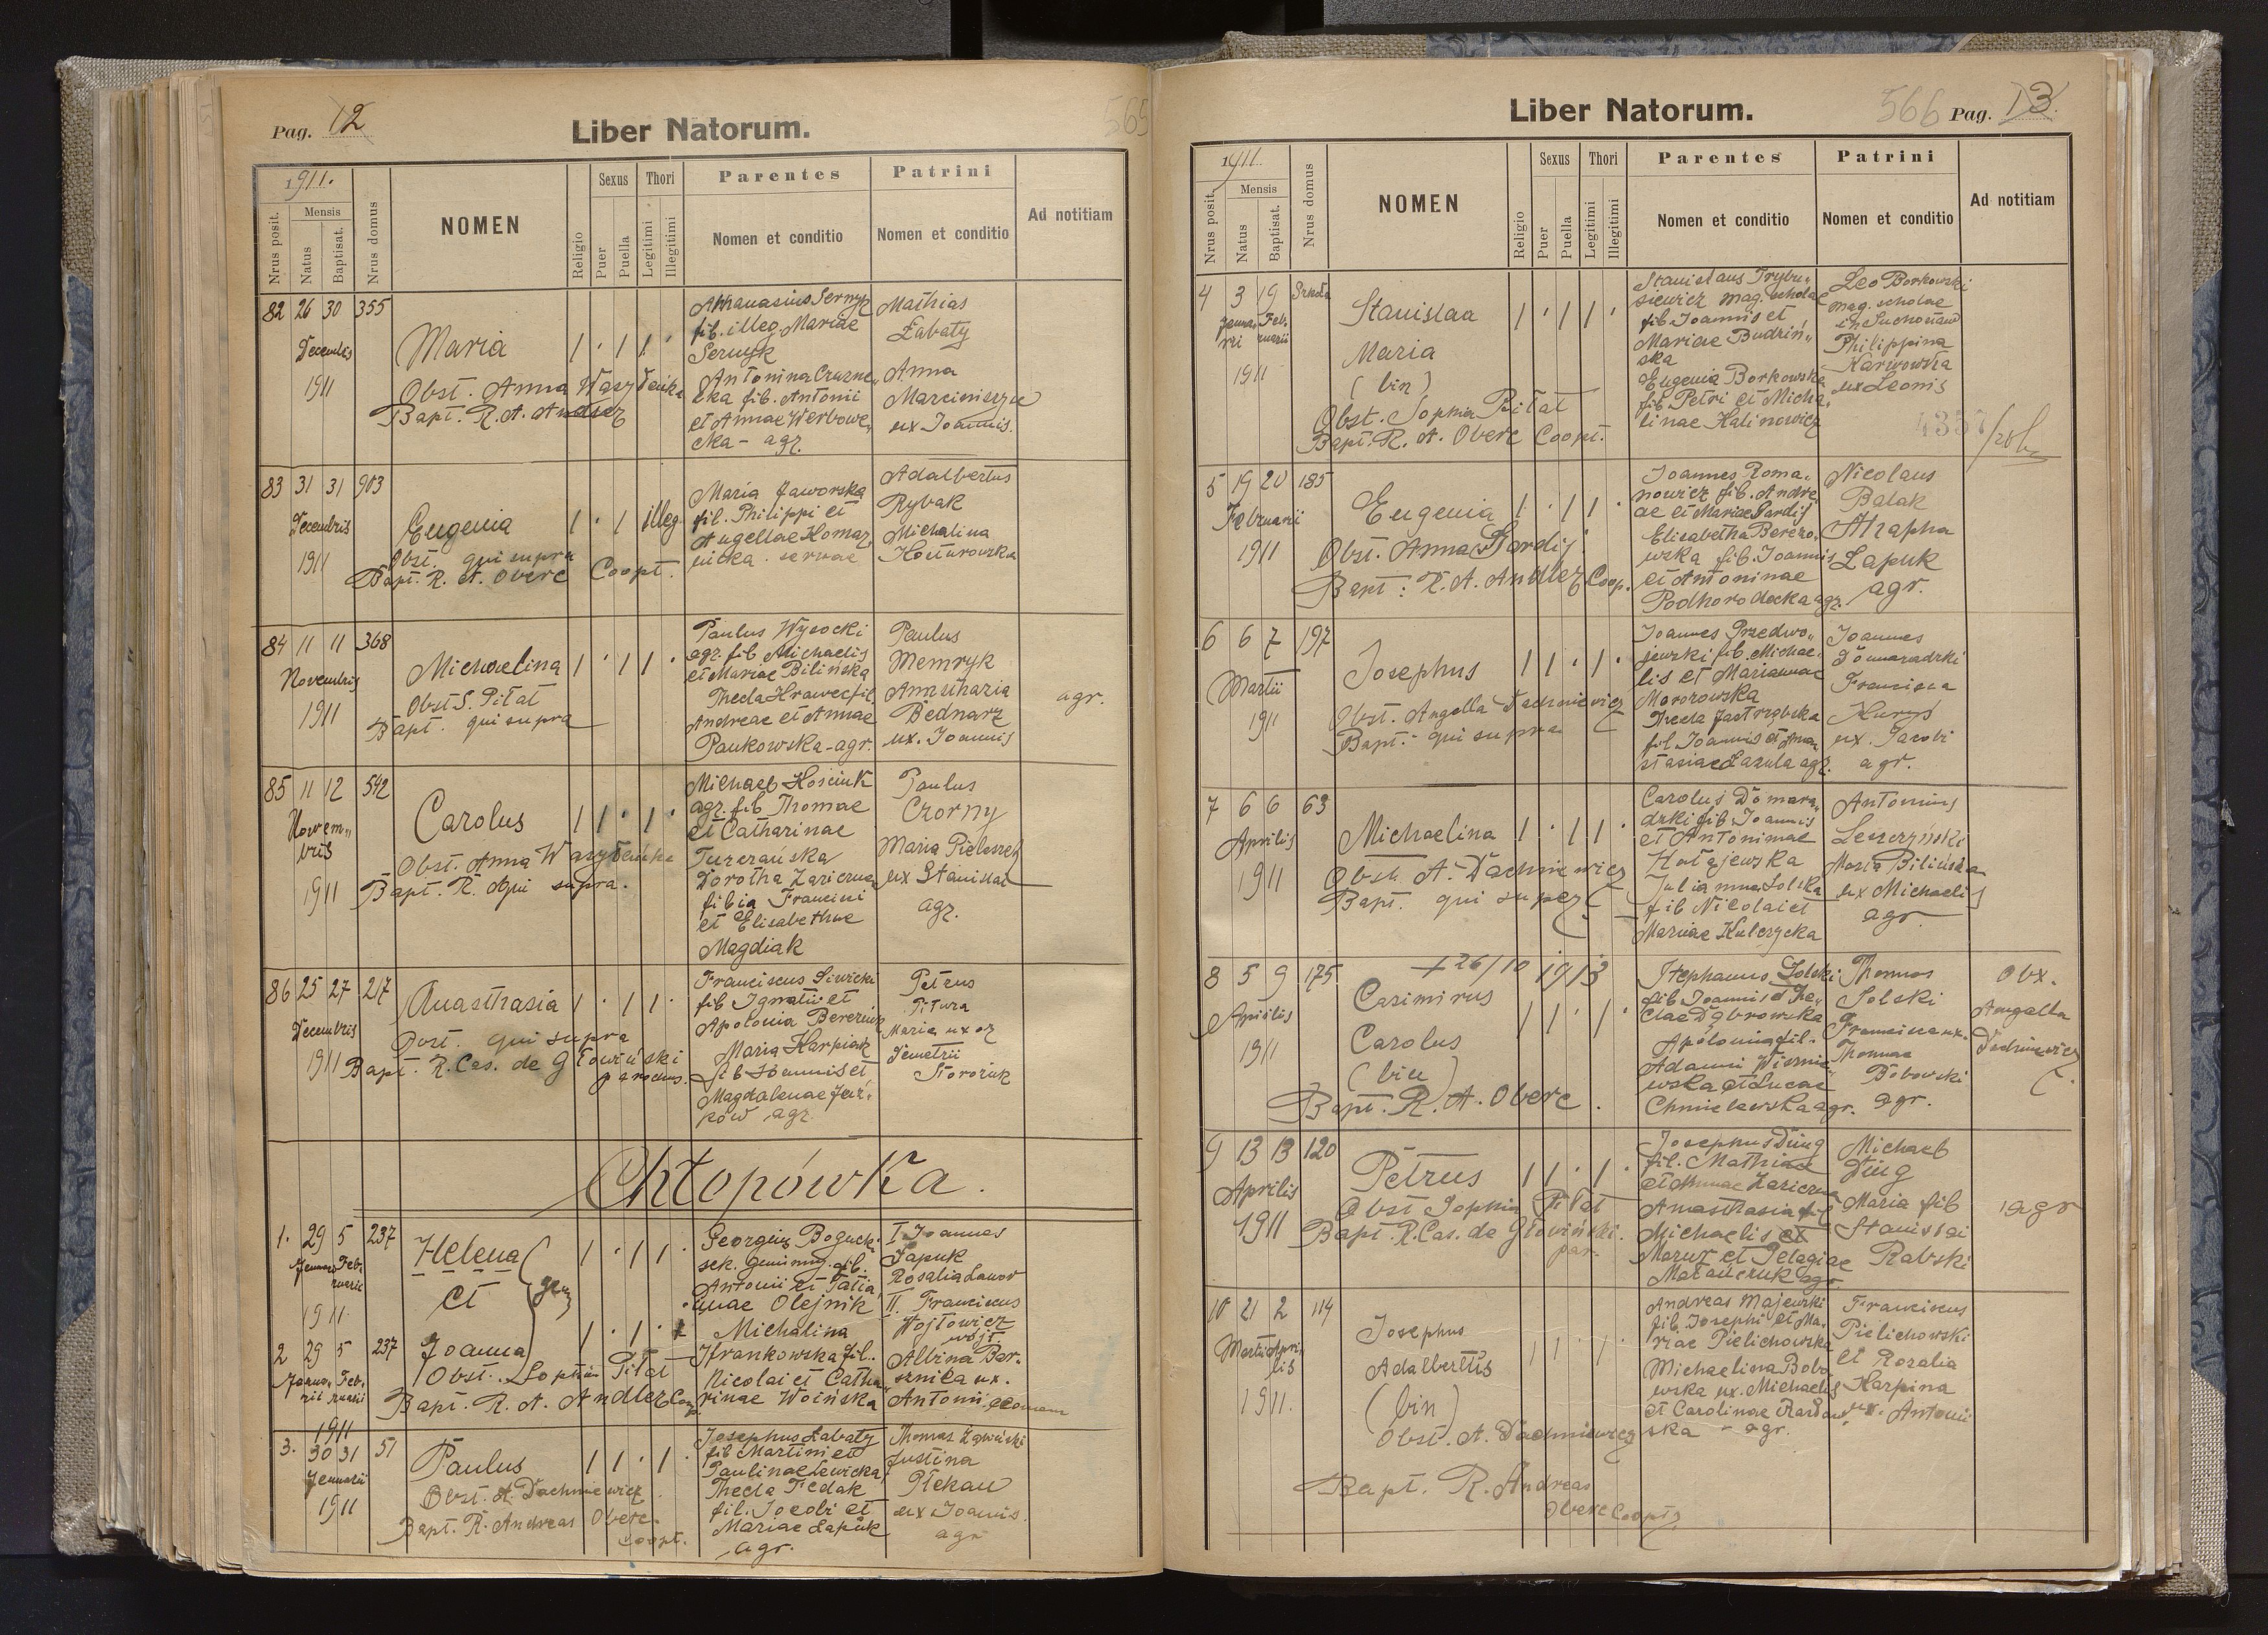 Pag. 12
Liber Natorum.
565
1911.
Nrus posit.
Mensis
Natus
Baptisat.
Nrus domus
NOMEN
Religio
Sexus
Puer
Puella
Thori
Legitimi
Illegitimi
Parentes
Nomen et conditio
Patrini
Nomen et conditio
Ad notitiam
82 26 30 355
Decembris
1911
Maria
Obst. Anna Wasyłeńka
Bapt. R. A. Andlez
Athanasius Sernyk
fil. illeg. Mariae
Sernyk
Antonina Czarne„
cka fil. Antonii
et Annae Werbowe„
cka - agr.
Mathias
Łabaty
Anna
Marciniszyn
ux Joannis.
83 31 31 903
Decembris
1911
Eugenia
illeg.
Obst. qui supra
Bapt. R. A. Oberc Coopt.
Maria Jaworska
fil. Philippi et
Angellae Komar„
nicka. servae
Adalbertus
Rybak
Michalina
Kosturowska
84 11 11 368
Novembris
1911
Michaelina
Obst S. Piłat
Bapt. qui supra
Paulus Wysocki
agr. fil Michaelis
et Mariae Bilińska
Thecla Krawec fil.
Andreae et Annae
Pankowska - agr.
Paulus
Memryk
Annastazia
Bednarz
ux. Joannis
agr.
85 11 12 542
Novem„
bris
1911
Carolus
Obst. Anna Wasyłeńka
Bapt. R. A. qui supra.
Michael Kościuk
agr. fil Thomae
et Catharinae
Turzańska
Dorotha Zariczna
filia Francisci
et Elisabethae
Magdiak
Paulus
Czorny
Maria Pieloszek
ux Stanislai
agr.
86 25 27 217
Decembris
1911
Anasthasia
Obst. qui supra
Bapt. R. Cas. de Głowiński
parochus.
Franciscus Siwicki
fil Ignatii et
Apolonia Berezniuk
Maria Karpiak
fil Joannis et
Magdalenae Jaś„
ków agr.
Petrus
Pitura
Maria uxor
Demetrii
Storożuk
Chłopówka.
1. 29 5 237
Januarii Feb„
ruarii
1911
Helena
et
gem
Joanna
2 29 5 237
Janua„ Feb„
rii ruarii
1911
Obst. Sophia Piłat
Bapt. R. A. Andlez Coop.
Georgius Bogucki
sek. gminny. fil.
Antonii et Tatia„
nae Olejnik
Michalina
Krankowska fil.
Nicolai et Catha„
rinae Woińska
I Joannes
Japuk
Rosalia Lawor
II. Franciscus
Wojtowicz
wójt
Albina Bar„
sznica ux.
Antonii
3. 30 31 51
Januarii
1911
Paulus
Obst. A. Dachniewicz
Bapt. R. Andreas Oberc
Coopt.
Josephus Łabaty
fil Martini et
Paulinae Lewicka
Thecla Fedak
fil. Jacobi et
Mariae Łapuk
agr.
Thomas Zgwiński
Justina
Plekan
ux Joannis
agr
Liber Natorum.
566 Pag. 13.
1911.
Nrus posit.
Mensis
Natus
Baptisat.
Nrus domus
NOMEN
Religio
Sexus
Puer
Puella
Thori
Legitimi
Illegitimi
Parentes
Nomen et conditio
Patrini
Nomen et conditio
Ad notitiam
4 3 19 Szkoła
Janua„ Feb„
rii ruarii
1911
Stanislaa
Maria
(bin)
Obst. Sophia Piłat
Bapt. R. A. Oberc Coopt.
Stanislaus Trybu„
siewicz mag. scholae
fil. Joannis et
Mariae Budziń„
ska
Eugenia Borkowska
fil Petri et Micha„
linae Kalinowicz
Leo Borkowski
mag. scholae
in Suchostaw
Philippina
Karwowska
ux Leonis
4357
5 19 20 185
Februarii
1911
Eugenia
Obst. Anna Gardij
Bapt: R. A. Andlez Coop.
Joannes Roma„
nowicz fil. Andre„
ae et Mariae Gardij
Elisabetha Berezo„
wska fil. Joannis
et Antoninae
Podhorodecka agr.
Nicolaus
Balak
Ahapha
Lapuk
agr.
6 6 7 197
Martii
1911
Josephus
Obst. Angella Dachniewicz
Bapt. - qui supra
Joannes Przedwo„
jewski fil. Michae„
lis et Mariannae
Morozowska
Thecla Jastrzębska
fil Joannis et Ana„
stasiae Łazula agr.
Joannes
Domaradzki
Francisca
Kuryś
ux. Jacobi
agr.
7 6 6 63
Aprilis
1911
Michaelina
Obst. A. Dachniewicz
Bapt. qui super
Carolus Domara„
dzki fil Joannis
et Antoninae
Hołajewska
Julianna Solska
fil Nicolai et
Mariae Kulczycka
Antonius
Leszczyński
Maria Bilińska
ux Michaelis
agr
8 5 9 175
Aprilis
1911
+ 26/10 1913
Casimirus
Carolus
(bin)
Bapt. R. A. Oberc.
Stephanus Solski
fil. Joannis et The„
clae Dąbrowska
Apolonia fil.
Adami Wiśnie„
wska et Lucae
Chmielewska agr.
Thomas
Solski
Francisca ux.
Thomae
Bobowski
agr.
Obx.
Angella
Dachniewicz
9 13 13 120
Aprilis
1911
Petrus
Obst Sophia Piłat
Bapt. R. Cas. de Głowiński.
par.
Josephus Ding
fil. Mathiae
et Annae Zariczna
Anasthasia fil
Michaelis et
Mazur et Pelagiae
Matańczuk agr
Michael
Ding
Maria fil
Stanislai
Rabski
agr
10 21 2 114
Martii Apri„
lis
1911.
Josephus
Adalbertus
(bin)
Obst. A. Dachniewicz
Bapt. R. Andreas
Oberc Coopt.
Andreas Majewski
fil. Josephi et Ma„
riae Pielichowska
Michaelina Bobo„
wska ux. Michaelis
et Carolinae
ska - agr.
Franciscus
Pielichowski
et Rozalia
Karpina
ux. Antonii